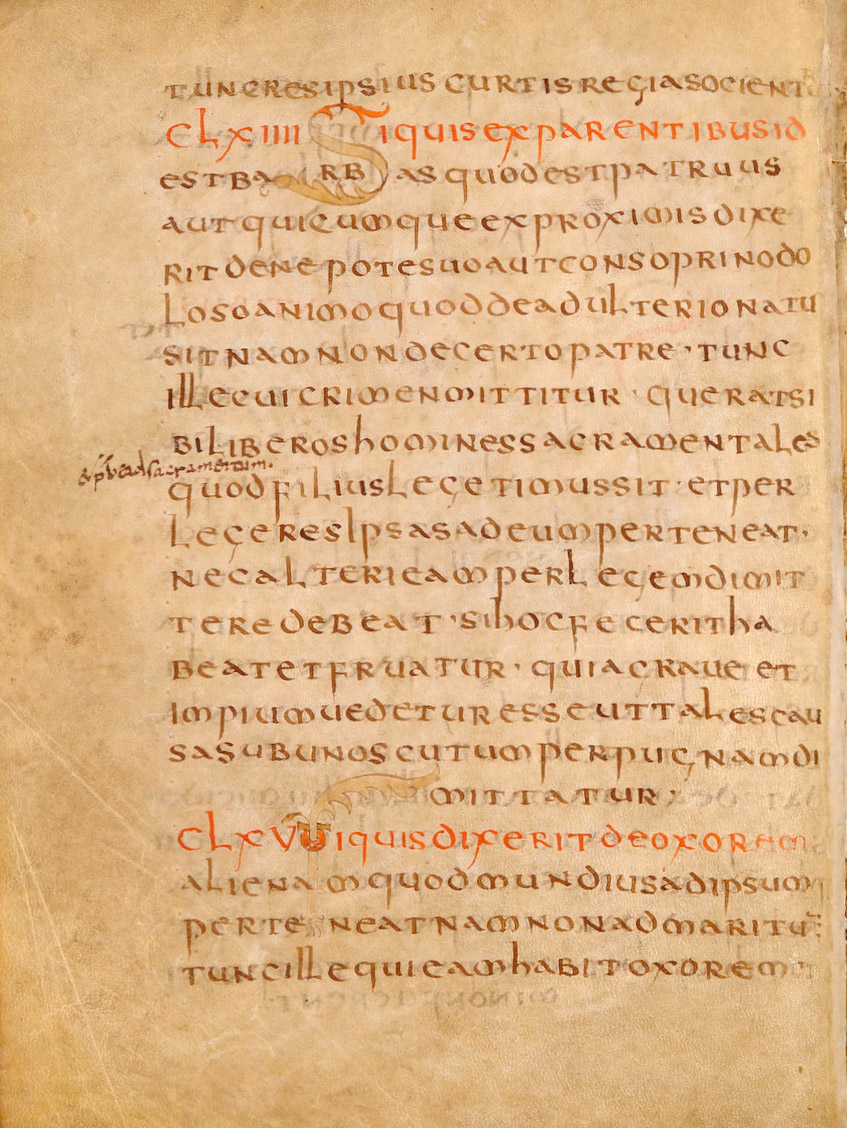 tuncresipsius curtisregiasocient
CLXIIII Siquisexparentibusid
estbarbasquodestpatruus
autquicumqueexproximisdixe
ritdenepotesuoautconsoprinodo
losoanimoquoddeadulterionatu
sitnamnondecertopatre·tunc
illecuicrimenmittitur·queratsi
biliberoshominessacramentales
quodfiliuslegetimussit·etper
legeresipsasadeumperteneat·
necalterieamperlegemdimit
teredebeat·sihocfeceritha
beatetfruatur·quiagraue et
impiumuedeturesseuttalescau
sasubunoscutumperpugnamdi
mittatur;
CLXV Siquisdixeritdeoxorem
alienamquodmundiusadipsum
perteneatnamnonadmaritu
tuncillequieamhabitoxorem